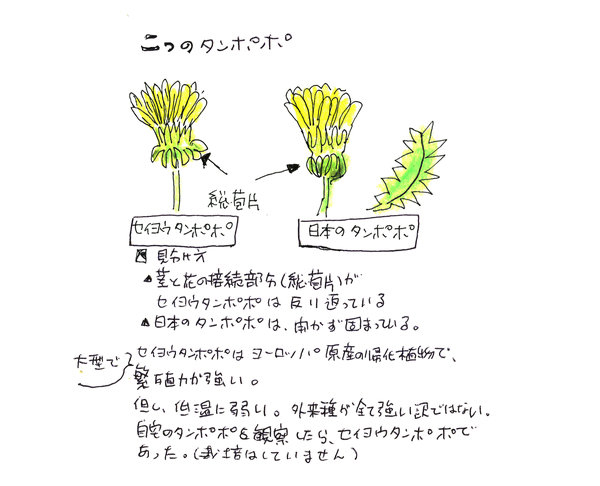 二つのタンポポ
総苞片
セイヨウタンポポ
日本のタンポポ
見分け方
▲茎と花の接続部分(総苞片)が
セイヨウタンポポは反り返っている
▲日本のタンポポは、開かず固まっている。
大型で
セイヨウタンポポはヨーロッパ原産の帰化植物で、
繁殖力が強い。
但し、低温に弱い。外来種が全て強い訳ではない。
自宅のタンポポを観察したら、セイヨウタンポポで
あった。(栽培はしていません)